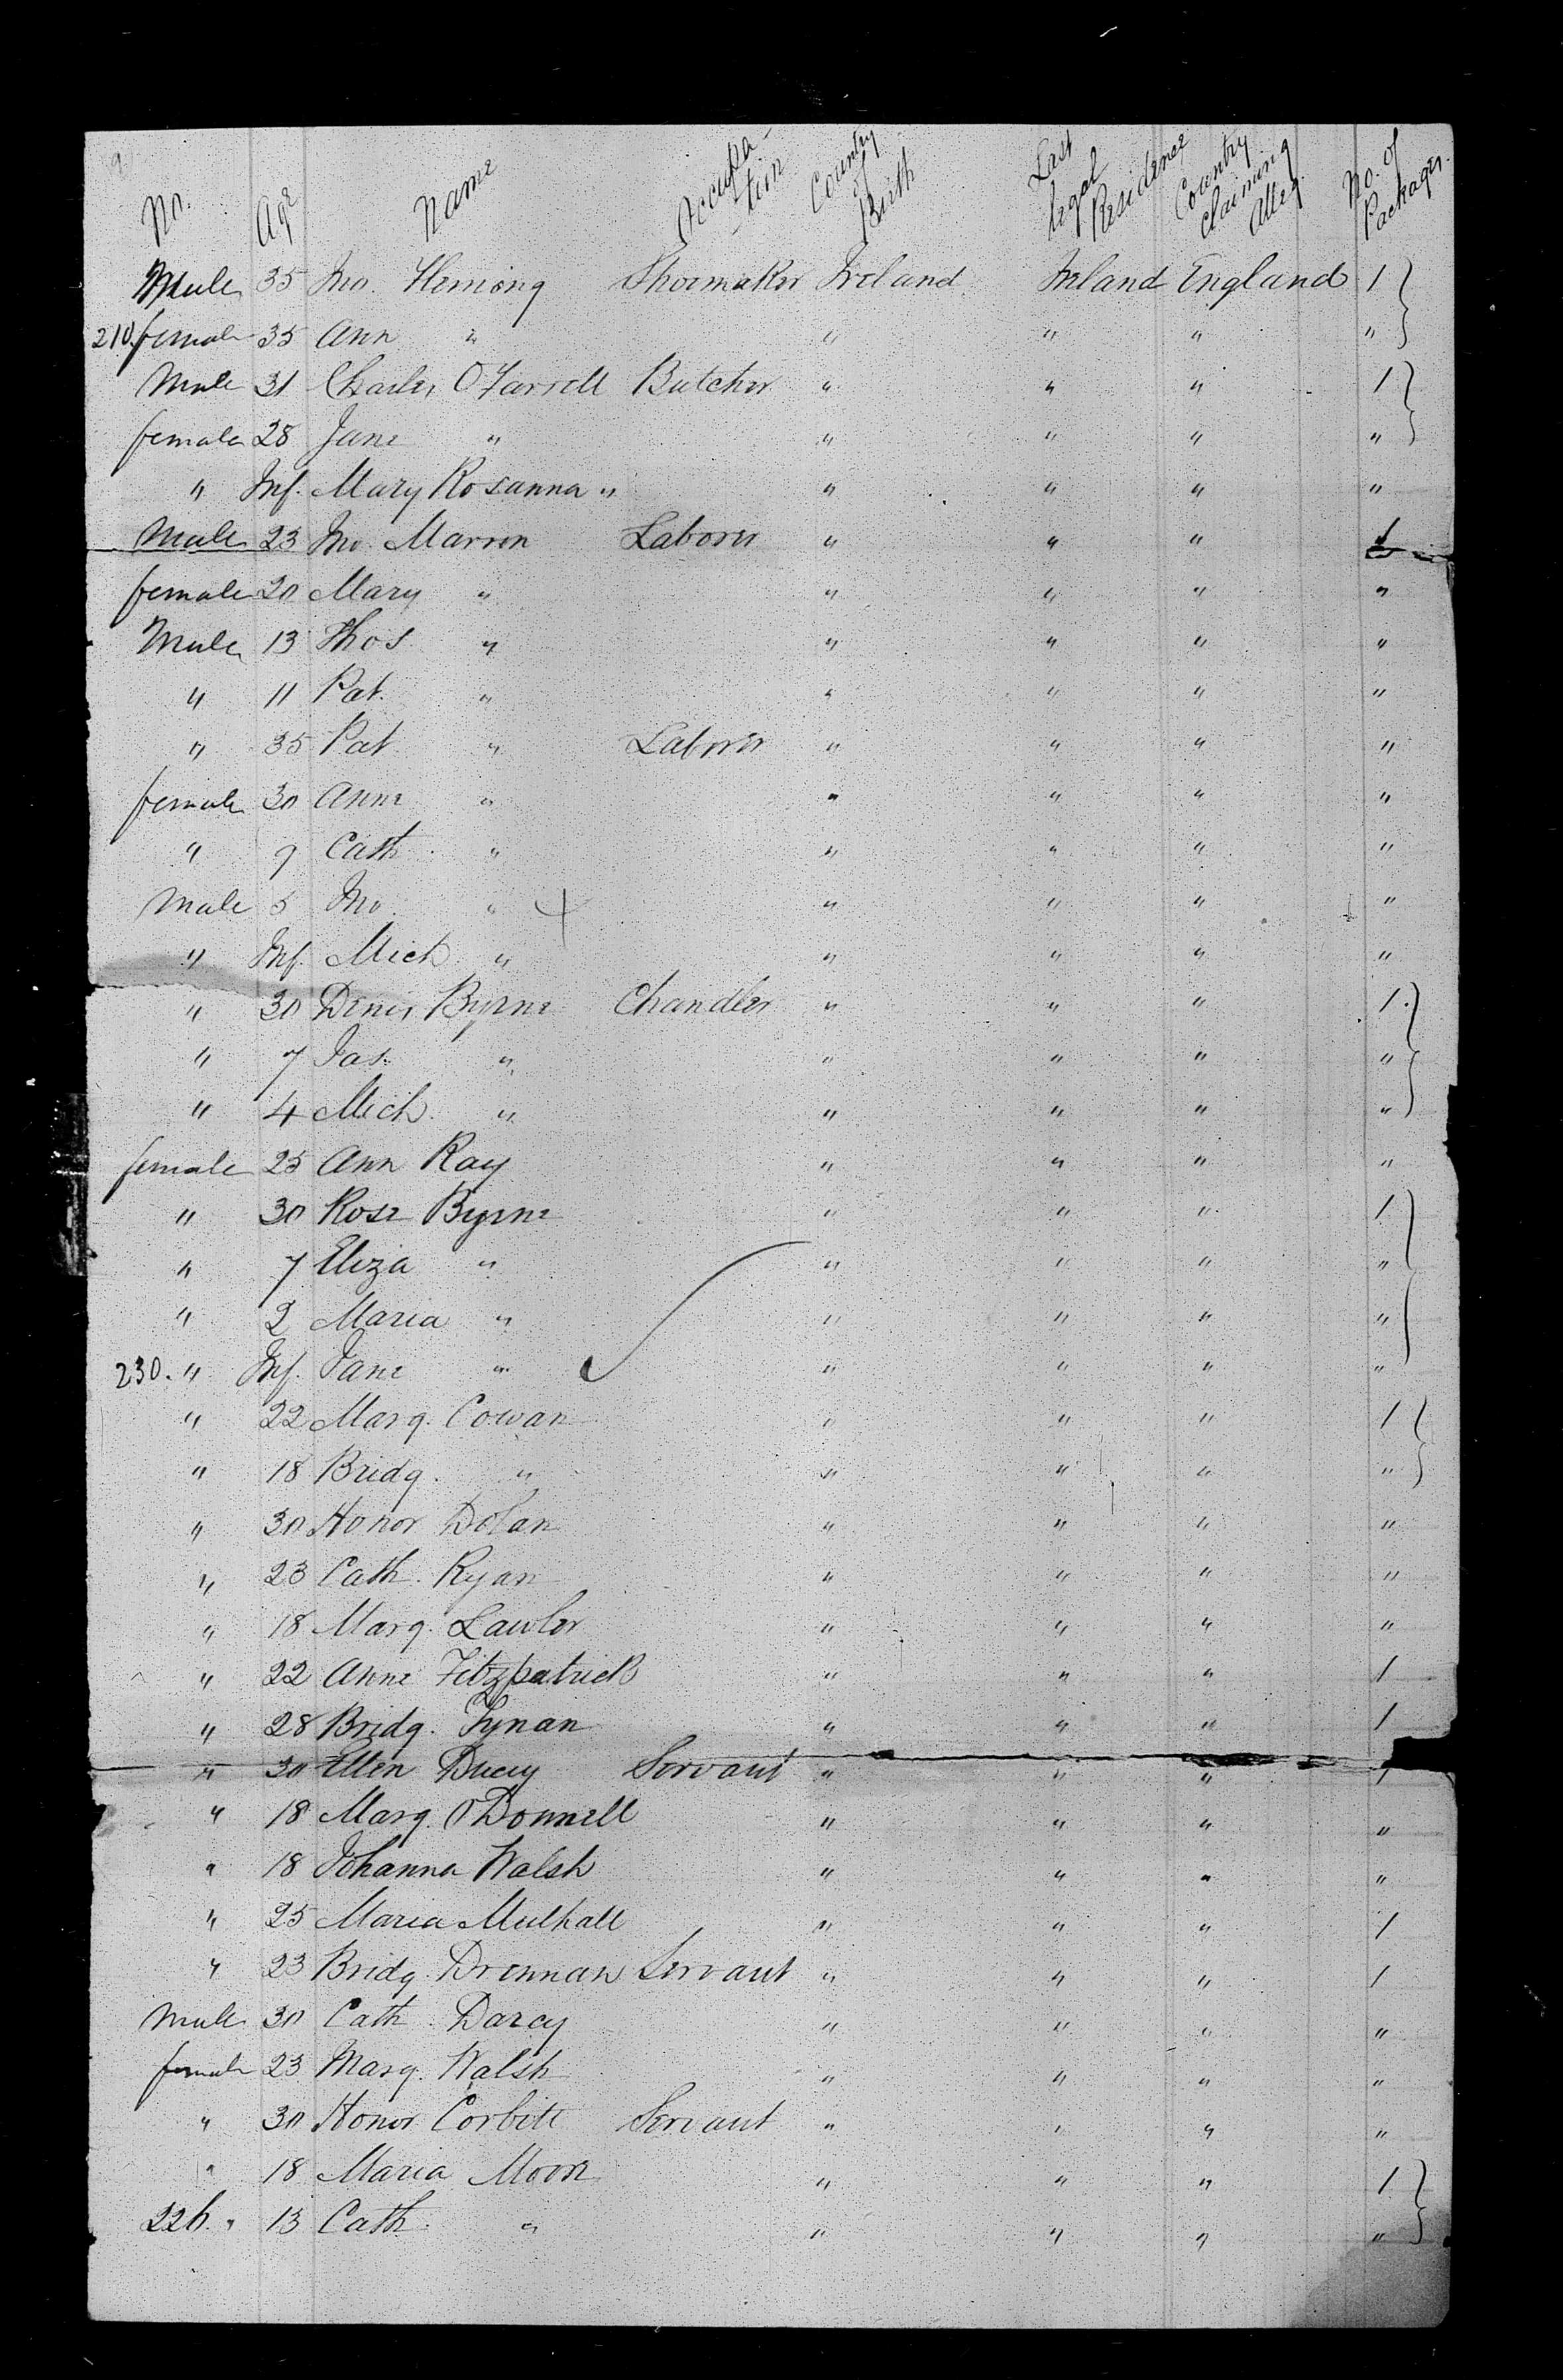 9
No. Age Name Occupa-tion Country of Birth Last legal Residence Country claiming Alleg. No. of Packages.
Male 35 Jno. Fleming Shoemaker Ireland Ireland England 1
210. female 35 Ann " " " " "
Male 31 Charles O'Farrell Butcher " " " 1
female 28 Jane " " " " "
" Inf. Mary Rosanna " " " " "
Male 23 Jno. Marron Laborer " " " 1
female 20 Mary " " " " "
Male 13 Thos " " " " "
" 11 Pat. " " " " "
" 35 Pat " Laborer " " " "
female 30 Anne " " " " "
" 9 Cath " " " " "
Male 5 Jno. " " " " "
" Inf. Mich " " " " "
" 30 Denis Byrne Chandler " " " 1
" 7 Jas. " " " " "
" 4 Mich. " " " " "
female 25 Ann Ray " " " "
" 30 Rose Byrne " " " 1
" 7 Eliza " " " " "
" 2 Maria " " " " "
230. " Inf. Jane " " " " "
" 22 Marg. Cowan " " " 1
" 18 Bridg. " " " " "
" 30 Honor Dolan " " " "
" 23 Cath. Ryan " " " "
" 18 Marg. Lawler " " " "
" 22 Anne Fitzpatrick " " " 1
" 28 Bridg. Tynan " " " 1
" 30 Ellen Ducey Servant " " " 1
" 18 Marg. O'Donnell " " " "
" 18 Johanna Walsh " " " "
" 25 Maria Mulhall " " " 1
" 23 Bridg. Drennan Servant " " " 1
Male 30 Cath. Darcy " " " "
female 23 Marg. Walsh " " " "
" 30 Honor Corbitt Servant " " " "
" 18 Maria Moore " " " 1
226. " 13 Cath. " " " " "